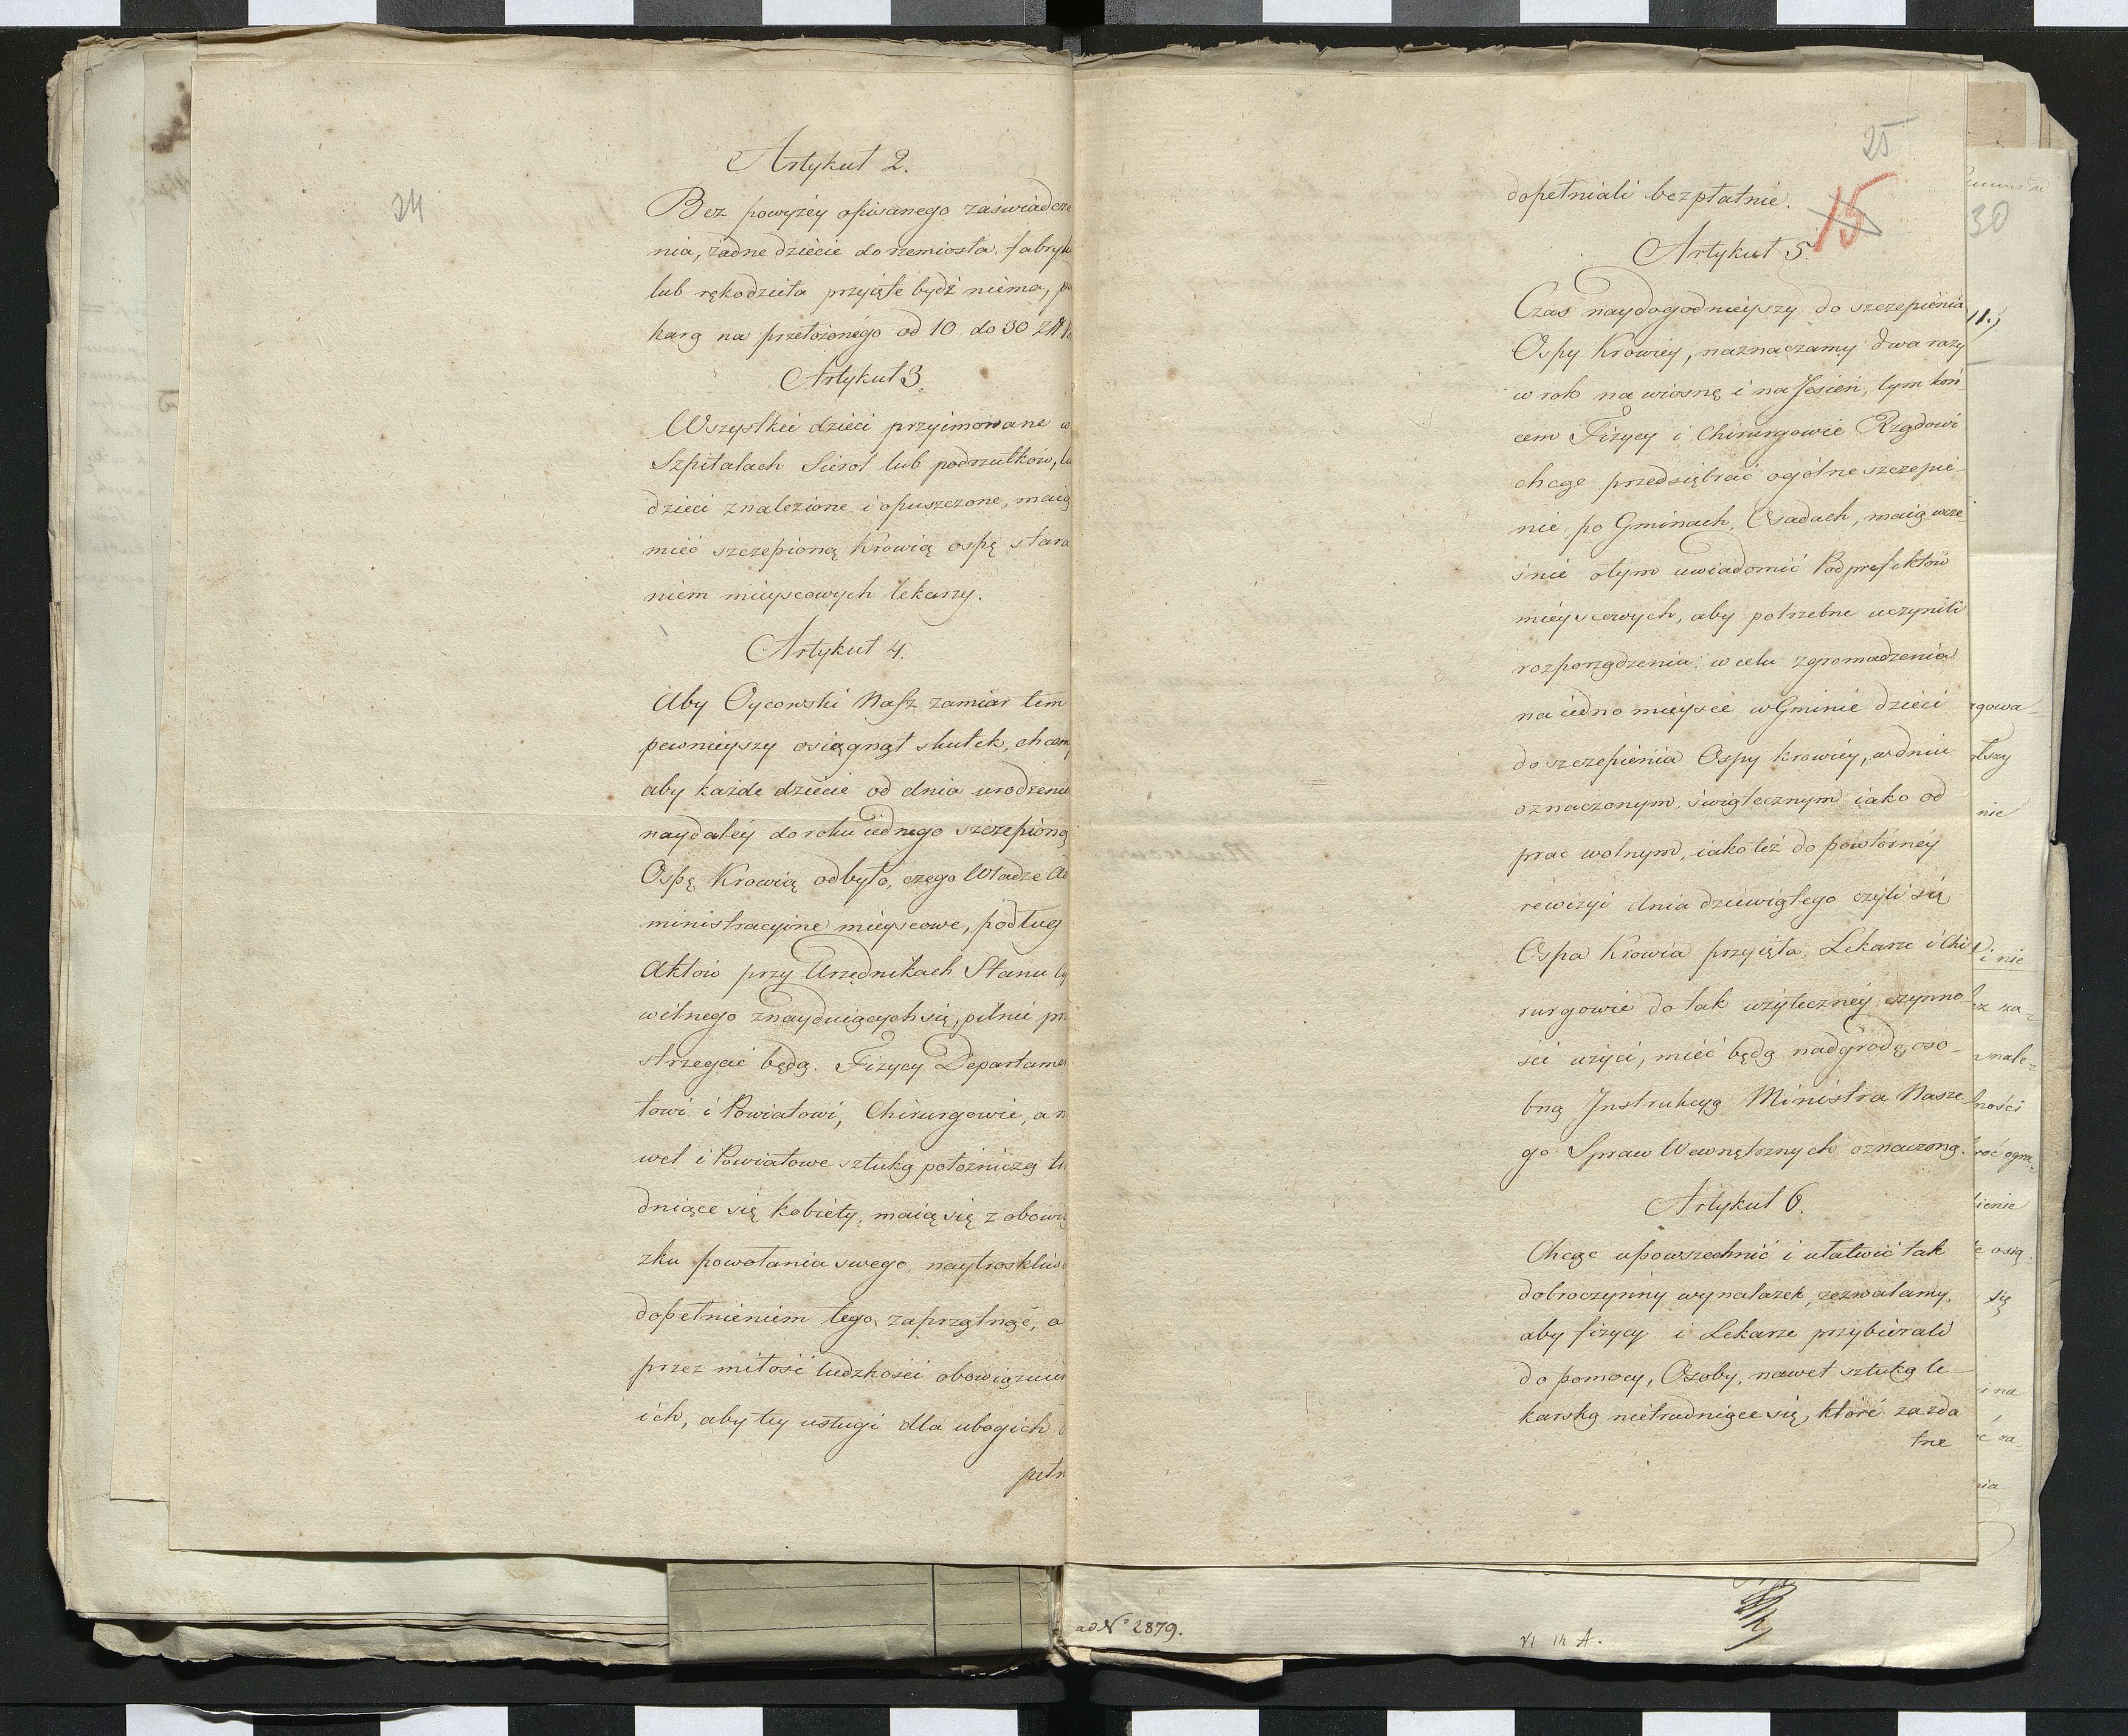 24
Artykuł 2.
Bez powyżey opisanego zaświadcze
nia, żadne dziécie do rzemiosła, fabryk
lub rękodzieła przyięte bydź niema, po
karą na przełożonego od 10. do 30 Złł
Artykuł 3.
Wszystkie dzieci przyimowane w
Szpitalach Sierot lub podrzutków, lu
dzieci znalezione i opuszczone, maią
mieć szczepioną Krowią ospę stara
niem mieyscowych lekarzy.
Artykuł 4.
Aby Oycowski Nasz zamiar tem
pewnieyszy osiągnął skutek, chcem
aby każde dziecie od dnia urodzenia
naydaléy do roku iednego szczepioną
Ospę Krowią odbyło, czego Władze Ad
ministracyine mieyscowe, podług
Aktów przy Urzędnikach Stanu Cy
wilnego znayduiących się, pilnie prz
strzegać będą. Fizycy Departame
towi i Powiatowi, Chirurgowie, a n
wet i Powiatowe sztuką położniczą tr
dniące się kobiéty, maią się z obowią
zku powołania swego, naytroskliw
dopełnieniem tego zaprzątnąć, a
przez miłość ludzkości obowiązuie
ich, aby tey usługi dla ubogich
pełn
25
dopełniali bezpłatnie.
15
Artykuł 5.
Czas naydogodnieyszy do szczepienia
Ospy Krowiéy, naznaczamy dwa razy
w rok na wiosnę i na Jesień, tym koń-
cem Fizycy i Chirurgowie Rządowi
chcąc przedsiębrać ogólne szczepie-
nie, po Gminach, Osadach, maią wcze-
śnie o tym uwiadomić Podprefektów
mieyscowych, aby potrzebne uczynili
rozporządzenia, w celu zgromadzenia
na iedno mieysce w Gminie dzieci
do szczepienia Ospy krowiéy, w dniu
oznaczonym, świątecznym iako od
prac wolnym, iako też do powtórnéy
rewizyi dnia dziewiątego czyli się
Ospa Krowia przyięła. Lekarze i Chi
rurgowie do tak użytecznéy czynno
ści użyci, mieć będą nadgrodę, oso-
bną Jnstrukcyą Ministra Nasze-
go Spraw Wewnętrznych oznaczoną.
Artykuł 6.
Chcąc upowszechnić i ułatwić tak
dobroczynny wynalazek, zezwalamy,
aby fizycy i Lekarze przybiérali
do pomocy, Osoby, nawet sztuką le-
karską nietrudniące się, które za zda
tne
30
11.)
rgowa-
nie
i nie
ez za-
nale-
ności
ienie
osią-
się
i na
ad N° 2879.